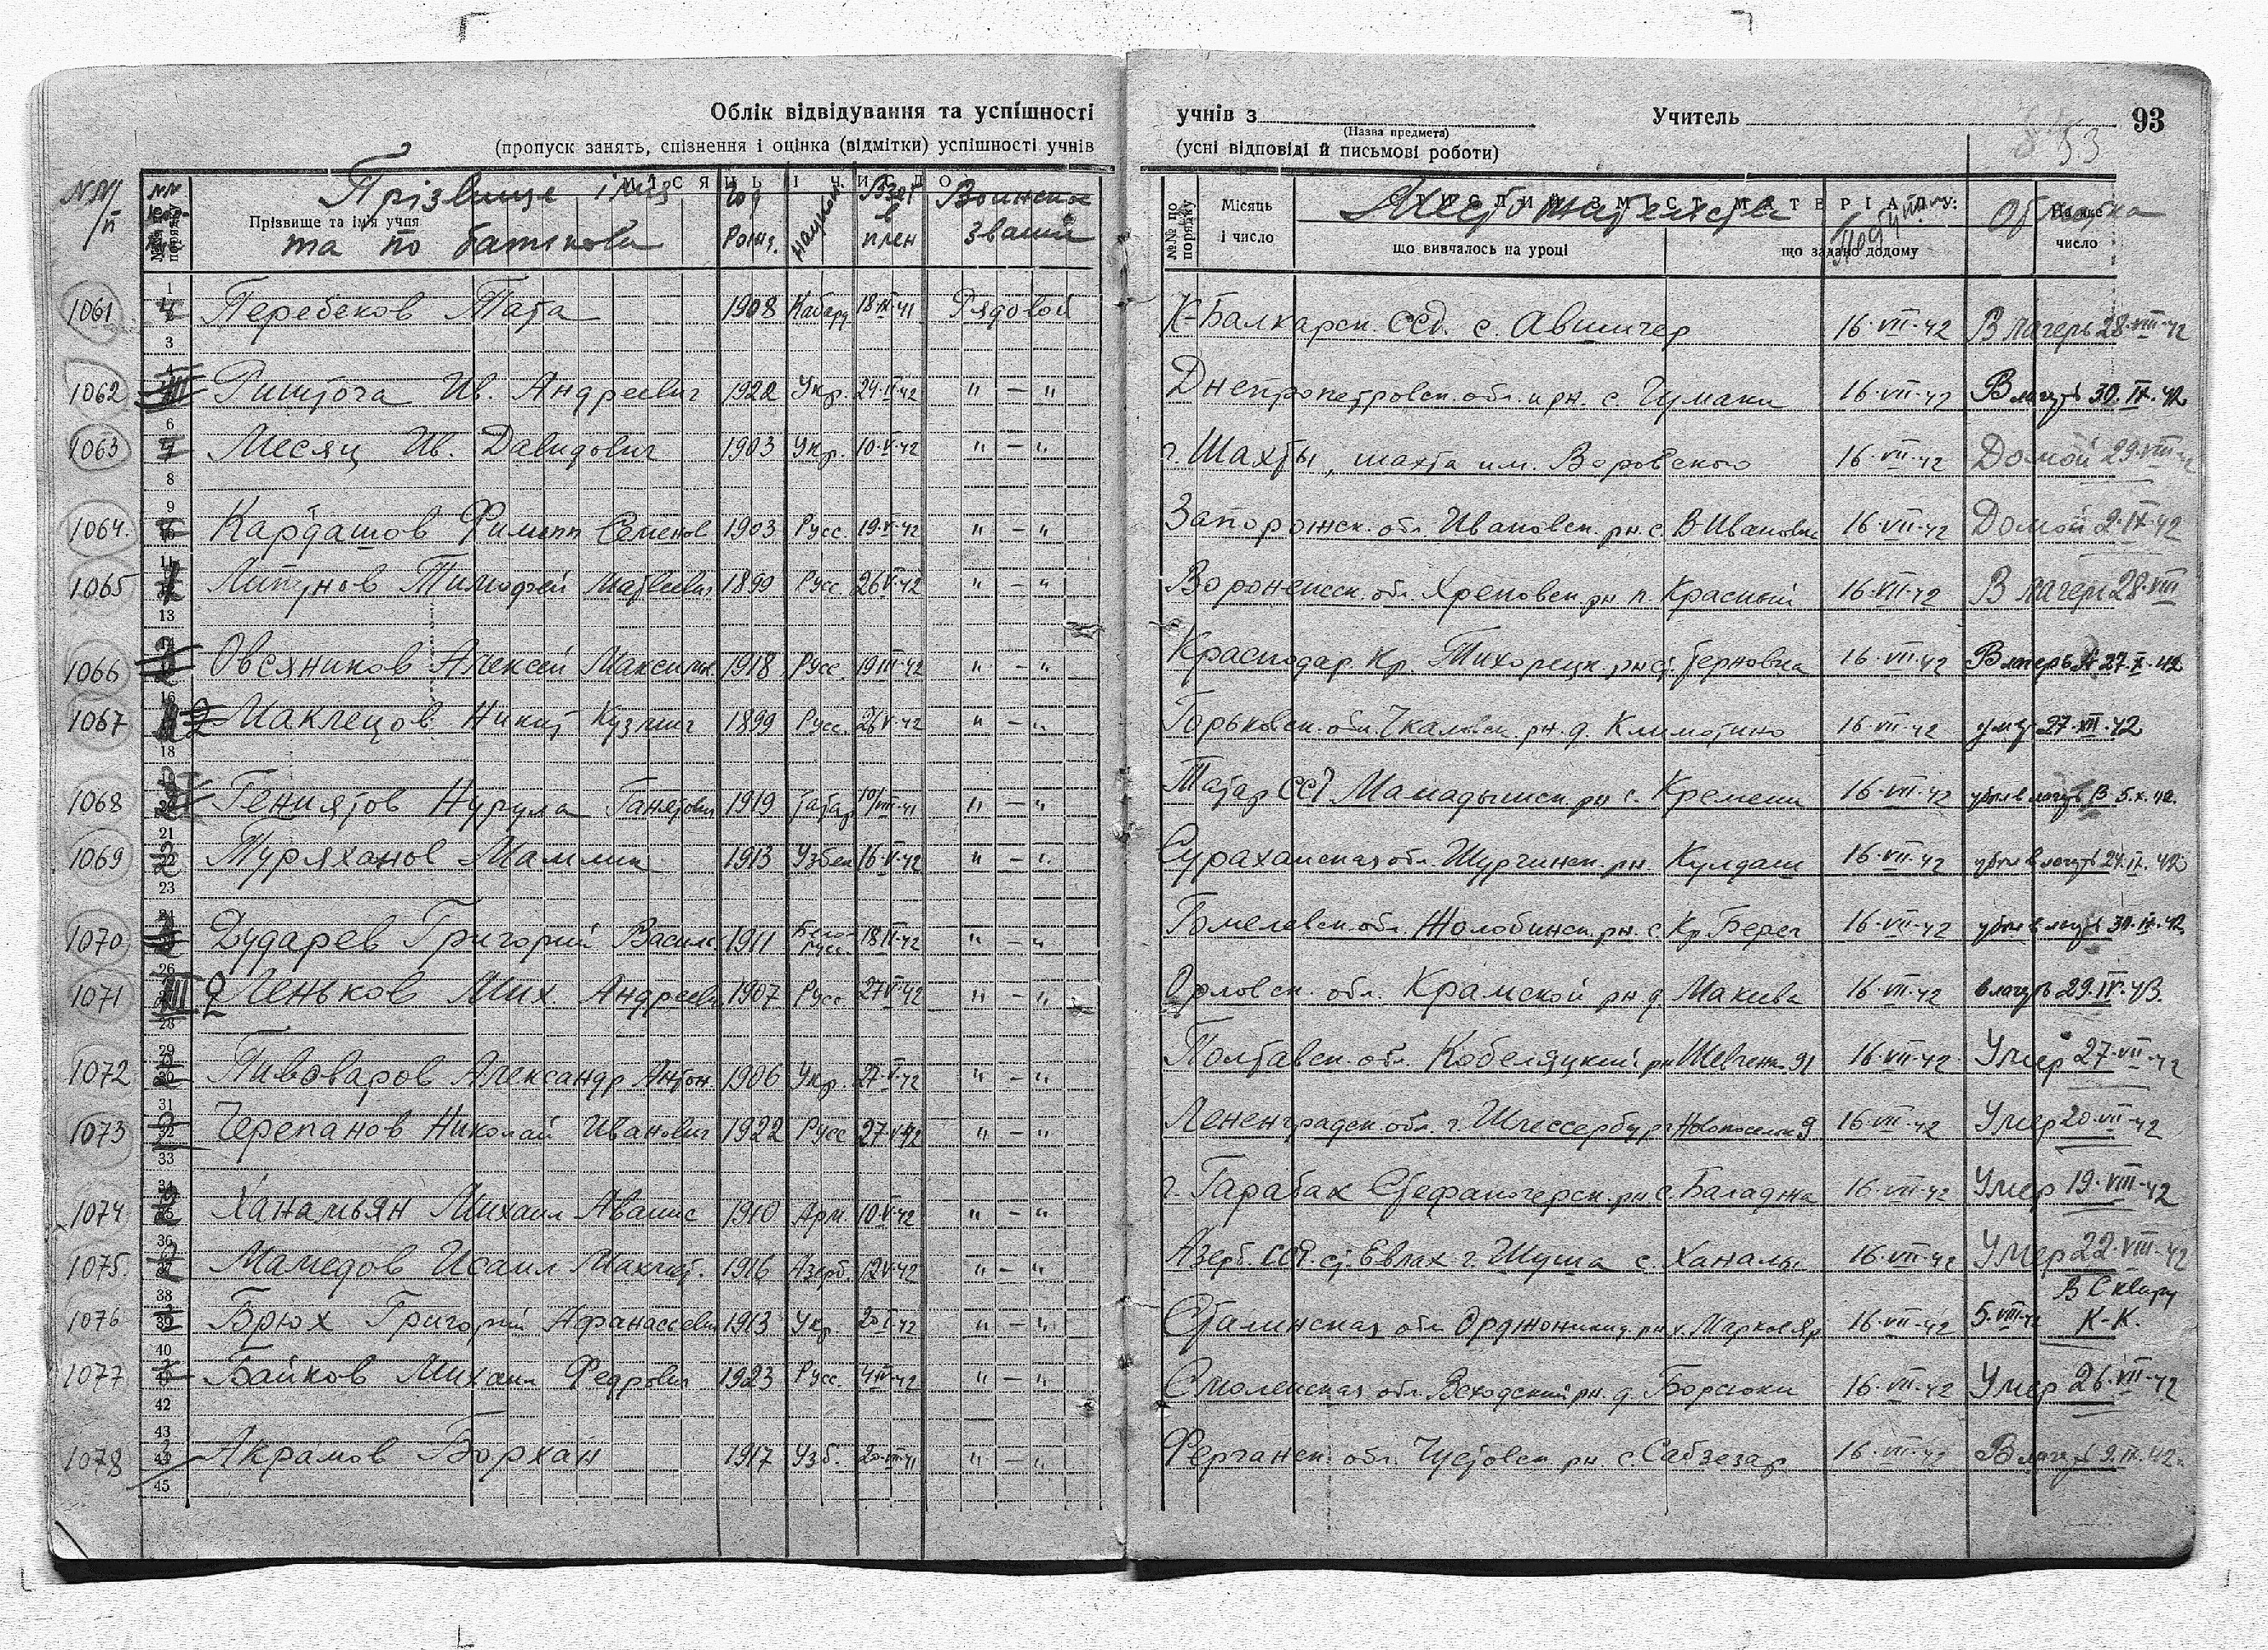 Облік відвідування та успішності
учнів з
Учитель
93
53
(Назва предмета)
(пропуск занять, спізнення і оцінка (відмітки) успішності учнів
(усні відповіді й письмові роботи)
Прізвище та ім'я учня
Прізвище імя
та по батькові
Воинское
звание
Місяць
і число
№№ по порядку
що вивчалось на уроці
що задано додому
На яке
число
1061 Перебеков Тата 1908 Кабард 18·IX·41 Рядовой К-Балкарск. ССР. с. Авшигер 16·VII·42 В лагерь 28·VIII·42
1062 Ив. Андреевич 1922 Укр. 24·V·42 " — " Днепропетровск. обл. и рн. с. Чумаки 16·VII·42 В лагерь 30.IX.42
1063 Месяц Ив. Давидович 1903 Укр. 10·V·42 " — " г. Шахты, шахта им. Воровского 16·VII·42 Домой 29·VIII·42
1064 Кардашов Филипп Семенов 1903 Русс 19·V·42 " — " Запорожск. обл Ивановск. рн. с. В Ивановка 16·VII·42 Домой 2·IX·42
1065 Липунов Тимофей Матвеевич 1899 Русс 26·V·42 " — " Воронежск. обл. Хреновск. рн п. Красный 16·VII·42 В лагерь 28·VIII
1066 Овсяников Алексей Максимов. 1918 Русс. 19·III·42 " — " Краснодар. Кр. Тихорецк. рн ст. Терновка 16·VII·42 В лагерь 27·X·42
1067 Маклецов Никит Кузмич 1899 Русс. 26·V·42 " — " Горьковск. обл. Чкаловск. рн. д. Климотино 16·VII·42 27·XII·42
1068 Гениятов Нурула Ганятович 1919 Татар 10/VIII·41 " — " Татар ССР Мамадышск. рн с. Кремени 16·VII·42 5.X.42
1069 Туряханов Мамлик 1913 Узбек 16·V·42 " — " обл. Шурчинск. рн. Кулдаш 16·VII·42 убыл в лагерь 24.IX.42
1070 Дударев Григорий Василь. 1911 Бело-русс. 18·II·42 " — " Гомелевск. обл. Жлобинск. рн. с. Кр. Берег 16·VII·42 убыл в лагерь 30.IX.42
1071 Леньков Мих Андреевич 1907 Русс 27·V·42 " — " Орловск. обл. Крамской рн д. Макеева 16·VII·42 в лагерь 29.IV.43.
1072 Пивоваров Александр Антон. 1906 Укр. 27·V·42 " — " Полтавск. обл. Кобеляцкий рн Шевченк. 91 16·VII·42 Умер 27·VII·42
1073 Черепанов Николай Иванович 1922 Русс 27·V·42 " — " Лененградск. обл. г. Шлессербург Новопоселк 9 16·VII·42 Умер 20·VII·42
1074 Ханамьян Михаил Аванис 1910 Арм. 10·V·42 " — " г. Гарабак Стефаногерск. рн с. Баладжа 16·VII·42 Умер 19·VIII·42
1075 Мамедов Исаил Махмут. 1916 Азерб. 12·V·42 " — " Азерб. ССР. ст. Евлах г. Шуша с. Ханалы 16·VII·42 Умер 22·VIII·42
1076 Брюх Григорий Афанасьевич 1913 Укр. 20·V·42 " — " Сталинская обл Орджоникид. рн х. Марков Яр 16·VII·42 5·VIII·42 В Сквиру К-К.
1077 Байков Михаил Федрович 1923 Русс. 42 " — " Смоленская обл. Всходский рн. д. Борсюки 16·VII·42 Умер 26·VII·42
1078 Акрамов Борхан 1917 Узб. 41 " — " Ферганск. обл. Чустовск. рн с Сабзезар 16·VII·42 В лагерь 9.IX.42